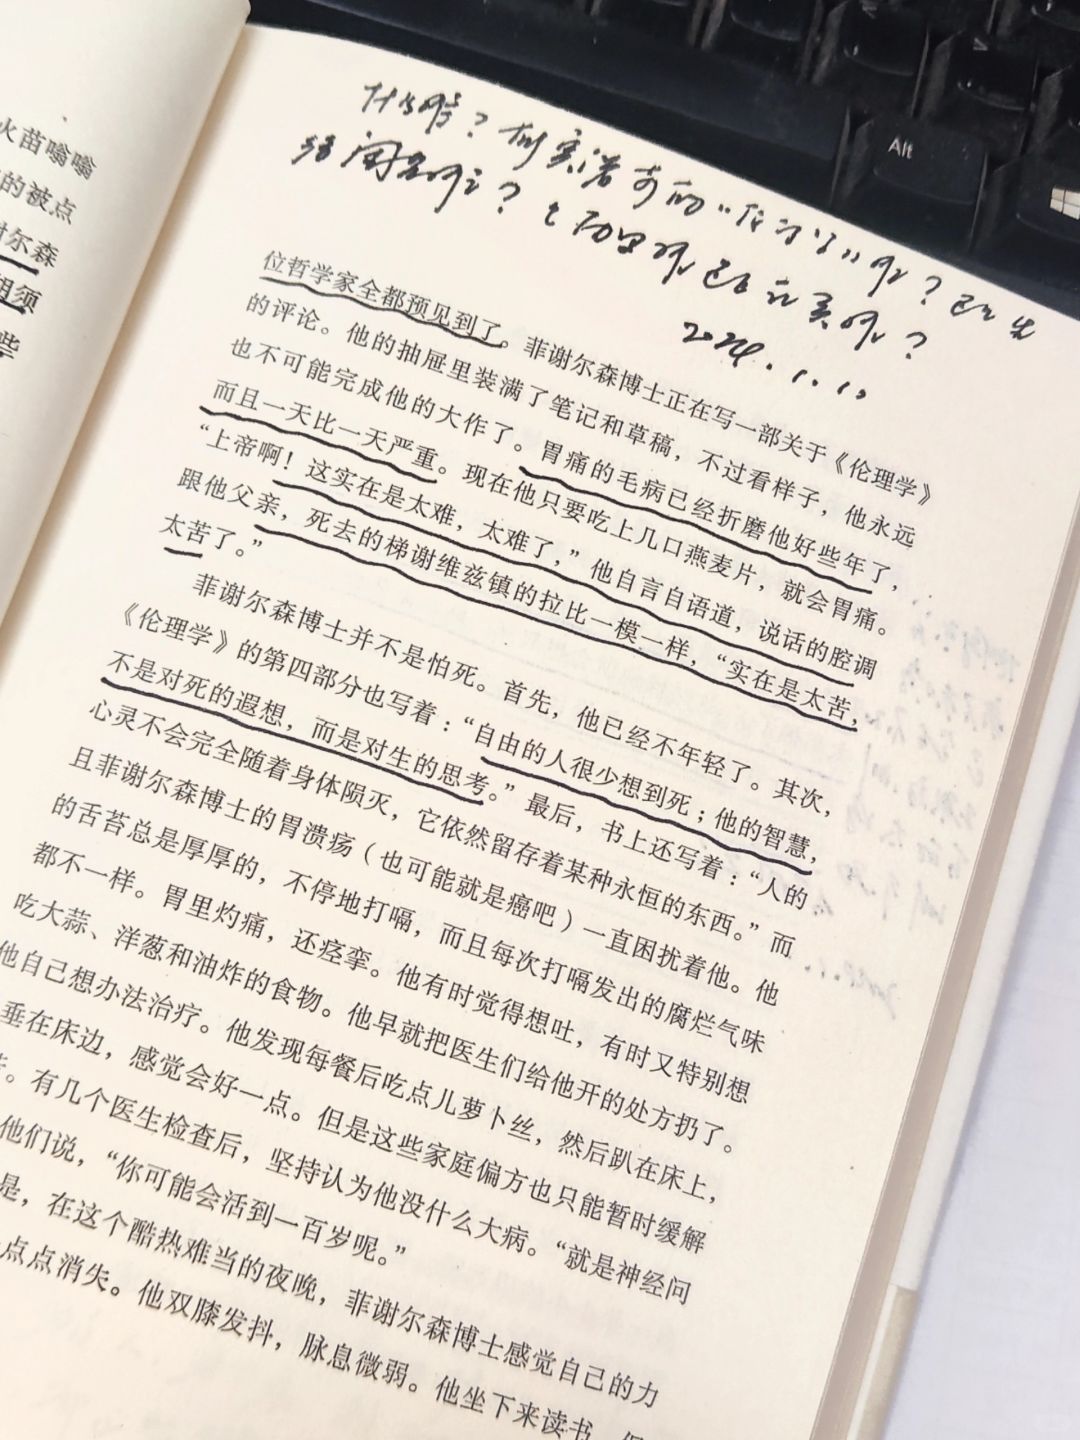 火苗嗡嗡
的被点
尔森
须
些
Alt
什么难？斯宾诺奇的
2024.1.10
位哲学家全都预见到了。菲谢尔森博士正在写一部关于《伦理学》
的评论。他的抽屉里装满了笔记和草稿，不过看样子，他永远
也不可能完成他的大作了。胃痛的毛病已经折磨他好些年了，
而且一天比一天严重。现在他只要吃上几口燕麦片，就会胃痛。
“上帝啊！这实在是太难，太难了，”他自言自语道，说话的腔调
跟他父亲，死去的梯谢维兹镇的拉比一模一样，“实在是太苦，
太苦了。”
菲谢尔森博士并不是怕死。首先，他已经不年轻了。其次，
《伦理学》的第四部分也写着：“自由的人很少想到死；他的智慧，
不是对死的遐想，而是对生的思考。”最后，书上还写着：“人的
心灵不会完全随着身体陨灭，它依然留存着某种永恒的东西。”而
且菲谢尔森博士的胃溃疡（也可能就是癌吧）一直困扰着他。他
的舌苔总是厚厚的，不停地打嗝，而且每次打嗝发出的腐烂气味
都不一样。胃里灼痛，还痉挛。他有时觉得想吐，有时又特别想
吃大蒜、洋葱和油炸的食物。他早就把医生们给他开的处方扔了。
他自己想办法治疗。他发现每餐后吃点儿萝卜丝，然后趴在床上，
垂在床边，感觉会好一点。但是这些家庭偏方也只能暂时缓解
。有几个医生检查后，坚持认为他没什么大病。“就是神经问
他们说，“你可能会活到一百岁呢。”
是，在这个酷热难当的夜晚，菲谢尔森博士感觉自己的力
点点消失。他双膝发抖，脉息微弱。他坐下来读书，